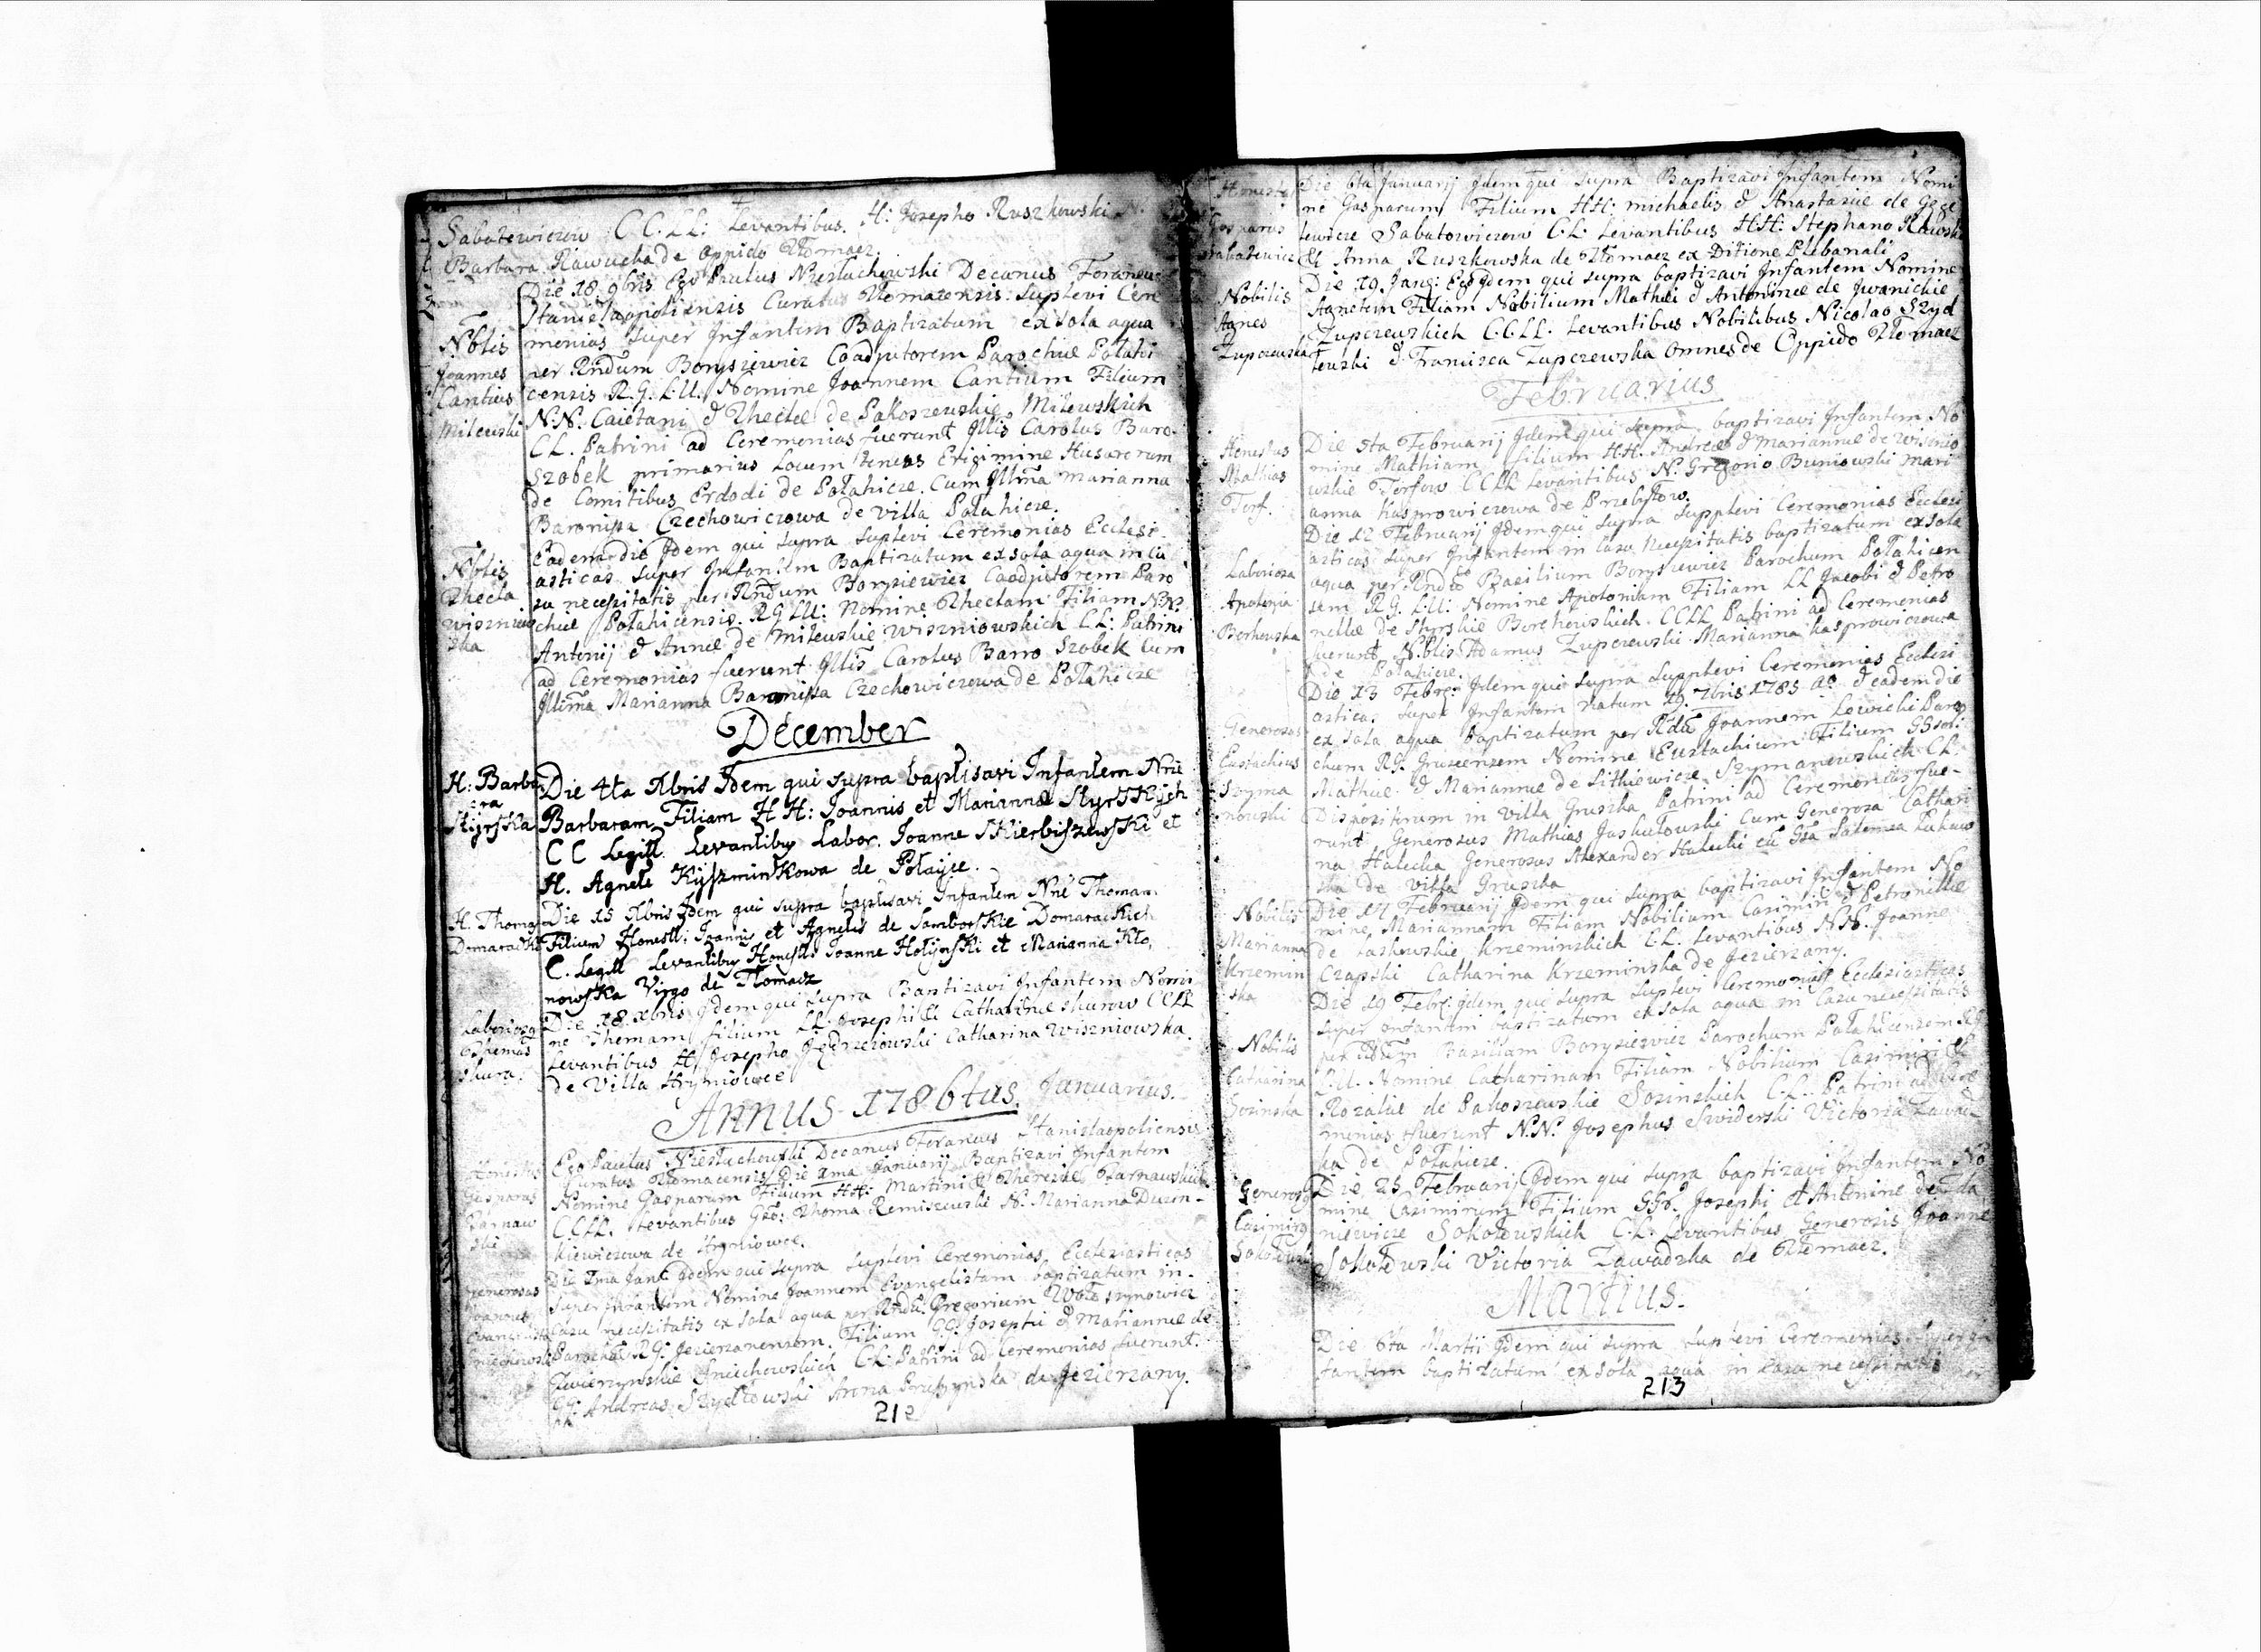 Sabatowiczow C.C.LL: Levantibus. H: Josepho Ruszkowski N.
Barbara Rawucka de Oppido Tłomacz.
Nobilis
Joannes
Cantius
Milewski
Die 18. 9bris Ego Paulus Niestuchowski Decanus Foraneus
Stanislaopoliensis Curatus Tłomacensis Suplevi Cere
monias super Infantem Baptizatum ex sola aqua
per Rndum Borysiewicz Coadjutorem Parochiæ Połahi
censis R.G. L.U. Nomine Joannem Cantium Filium
N.N. Caietani & Theclæ de Pakoszewskie Milewskich
CL. Patrini ad Ceremonias fuerunt Jllis Carolus Baro
Szobek primarius Locum tenens Erigimine Husarorum
de Comitibus Erdodi de Połahicze. Cum Jllma Marianna
Baronissa Czechowiczowa de villa Połahicze.
Nobilis
Thecla
Wiszniow
ska
Eadem die Jdem qui supra Suplevi Ceremonias Ecclesi
asticas super Infantem Baptizatum ex sola aqua in Ca
su necessitatis per Rndum Borysiewicz Coadjutorem Paro
chiæ Połahicensis. RG LU: Nomine Theclam Filiam NN.
Antonij & Annæ de Milewskie Wiszniowskich CL: Patrini
ad Ceremonias fuerunt Jllis Carolus Barro Szobek Cum
Jllma Marianna Baronissa Czechowiczowa de Połahicze
December
H: Barba
ra
Skyrska
Die 4ta Xbris Jdem qui supra baptisavi Infantem Nnē
Barbaram Filiam H H: Joannis et Mariannæ Skyrskych
C C Legitt. Levantibus Labor. Joanne Skierbiszewski et
H. Agnete Kyszminkowa de Połayce.
H. Thomas
Domaracki
Die 15 Xbris Jdem qui supra baptisavi Infantem Nnē Thomam
Filium Honestt: Joannis et Agnetis de Samborskie Domarackich
C. Legitt Levantibus Honestt. Joanne Hołynski et Marianna Kło,
nowska Virgo de Tłomacz
Laboriosg
Thomas
Skura.
Die 18. Xbris Jdem qui supra Baptizavi Infantem Nomi
ne Thomam filium LL. Josephi & Catharinæ Skurow CCLL
Levantibus H. Josepho Jędrzeiowski Catharina Wiszniowska
de Villa Hryniowce
ANNUS 1786tus. Januarius.
Honestus
Gasparus
Tarnaw
ski
Ego Paulus Niestuchowski Decanus Foraneus Stanislaopoliensis
Curatus Tłomacensis Die 1ma Januarij Baptizavi Infantem
Nomine Gasparum Filium HH: Martini & Theresiæ Tarnawskich
CCLL. Levantibus Gso: Thoma Remiszewski N. Marianna Duzen-
kiewiczowa de Hryniowce.
Generosus
Joannes
Evangelista
Die 2ma Janū Jdem qui supra Suplevi Ceremonias Ecclesiasticas
super Infantem Nomine Joannem Evangelistam baptizatum in
Casu necessitatis ex sola aqua per Rndū Gregorium
Parochū R.G. Jezierzanensem. Filium GG: Josephi & Mariannæ de
Zwierzynskie Gniechowskich CL: Patrini ad Ceremonias fuerunt.
GG: Andreas Szydłowski Anna de Jezierzany.
212
Honestus
Gasparus
Sabatowicz
Die 6ta Januarij Jdem qui supra Baptizavi Infantem Nomi
ne Gasparum Filium HH: Michaelis & Anastasiæ de
Sabatowiczow C.L: Levantibus HH: Stephano Rawski
& Anna Ruszkowska de Tłomacz ex Ditione Plebanali
Nobilis
Agnes
Zupczewska
Die 19. Janū: Jdem qui supra baptizavi Infantem Nomine
Agnetem Filiam Nobilium Mathei & Antoninæ de Jwanickie
Zupczewskich CCLL. Levantibus Nobilibus Nicolao Szyd
łowski & Francisca Zupczewska Omnes de Oppido Tłomacz
Februarius
Honestus
Mathias
Torf.
Die 5ta Februarij Jdem qui supra baptizavi Infantem No
mine Mathiam filium HH. Andreæ & Mariannæ de Wisnio
wskie Torfow CCLL Levantibus N. Gregorio Buniowski Mari
anna Kasprowiczowa de Przebyłow.
Laboriosa
Apolonia
Borkowska
Die 12 Februarij Jdem qui supra Supplevi Ceremonias Ecclesi
asticas super Infantem in Casu Necessitatis baptizatum ex sola
aqua per Rndū Basilium Borysiewicz Parochum Połahicen
sem R.G. L.U: Nomine Apoloniam Filiam LL Jacobi & Petro
nellæ de Skyrskie Borchowskich. CCLL Patrini ad Ceremonias
fuerunt Nblis Adamus Zupczewski Marianna Kasprowiczowa
de Połahicze.
Generosus
Eustachius
Szyma
nowski
Die 13 Febr: Jdem qui supra Supplevi Ceremonias Ecclesi
asticas super Infantem natum 19. 7bris 1785 Ao. & eadem die
ex sola aqua baptizatum per Rdū Joannem Lewicki Paro
chum RG. Gruscensem Nomine Eustachium Filium GGsor:
Mathiæ & Mariannæ de Sitkiewicze Szymanowskich CL.
Dispositorum in villa Gruszka Patrini ad Ceremonias fue-
runt Generosus Mathias Jaskułowski Cum Generosa Cathari
na Halecka Generosus Alexander Halecki cū Gsa Salomea Łukaw
ska de villa Gruszka
Nobilis
Marianna
Krzemin
ska
Die 17 Februarij Jdem qui supra baptizavi Infantem No
mine Mariannam Filiam Nobilium Casimiri & Petronellæ
de Laskowskie Krzeminskich C.L. Levantibus N.N. Joanne
Czapski Catharina Krzeminska de Jezierzany.
Nobilis
Catharina
Sosinska
Die 19 Febr: Jdem qui supra Suplevi Ceremonias Ecclesiasticas
super Infantem baptizatum ex sola aqua in Casu necessitatis
per Rndum Basilium Borysiewicz Parochum Połahicensem RG
L.U. Nomine Catharinam Filiam Nobilium Casimiri &
Rozaliæ de Pakoszewskie Sosinskich C.L. Patrini ad Cere
monias fuerunt N.N. Josephus Swiderski Victoria Zawadz
ka de Połahicze.
Generosg
Casimirg
Sokołowski
Die 25 Februarij Jdem qui supra baptizavi Infantem No
mine Casimirum Filium GGr. Josephi et Antoninæ de
Sokołowskich C.L. Levantibus Generosis Joanne
Sokołowski Victoria Zawadzka de Tłomacz.
Martius.
Die 6ta Martii Jdem qui supra Suplevi Ceremonias super In
fantem baptizatum ex sola aqua in Casu necessitatis per
213